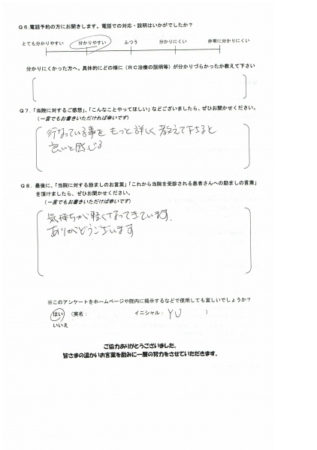 Q6.電話予約の方にお聞きします。電話での対応・説明はいかがでしたか？
とても分かりやすい　分かりやすい　ふつう　分かりにくい　非常に分かりにくい
分かりにくかった方へ。具体的にどの様に（RC治療の説明等）が分かりづらかったか教えて下さい
Q7.「当院に対するご感想」、「こんなことやってほしい」などございましたら、ぜひお聞かせください。
（一言でもお書きいただければ幸いです）
行なっている事を もっと詳しく 教えて下さると
良いと感じる
Q8.最後に、「当院に対する励ましのお言葉」「これから当院を受診される患者さんへの励ましの言葉」
を頂けましたら、ぜひお聞かせください。
（一言でもお書きいただければ幸いです）
気持ちが軽くなってきています。
ありがとうございます
※このアンケートをホームページや院内に掲示するなどで使用しても宜しいでしょうか？
はい　（実名：　イニシャル：YU　）
いいえ
ご協力ありがとうございました。
皆さまの温かいお言葉を励みに一層の努力をさせていただきます。